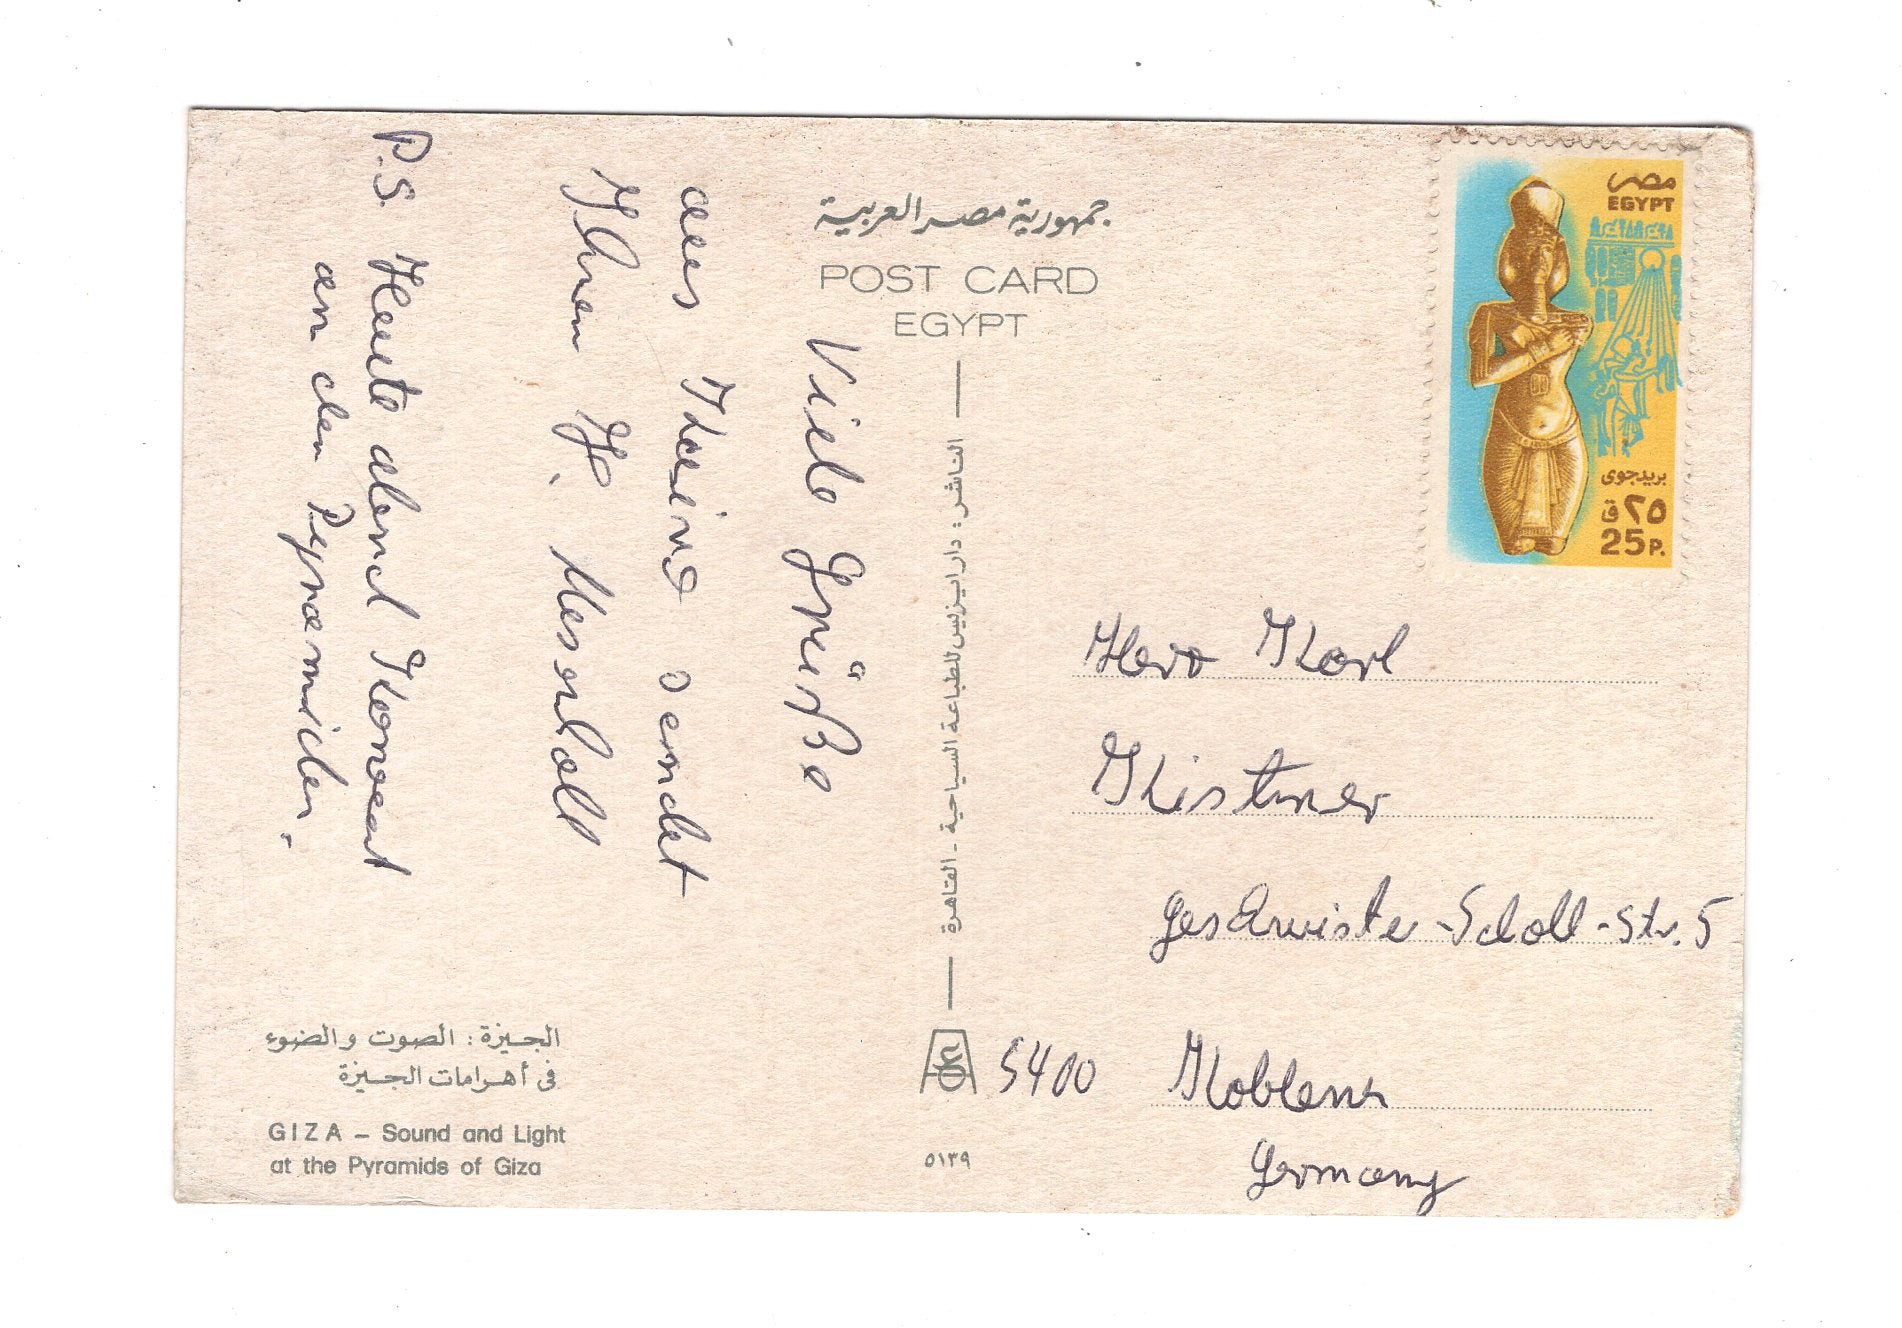 جمهورية مصر العربية
POST CARD
EGYPT
Viele Grüße
aus Kairo sendet
Ihnen H.
P.S. Heute abend Konzert
an den Pyramiden.
الجيزة : الصوت والضوء
فى أهرامات الجيزة
GIZA – Sound and Light
at the Pyramids of Giza
الناشر : دار ايزيس للطباعة السياحية - القاهرة
٥١٣٩
مصر
EGYPT
بريد جوى
٢٥ ق
25 P.
Herr Karl
Kistner
Geschwister-Scholl-Str. 5
5400 Koblenz
Germany